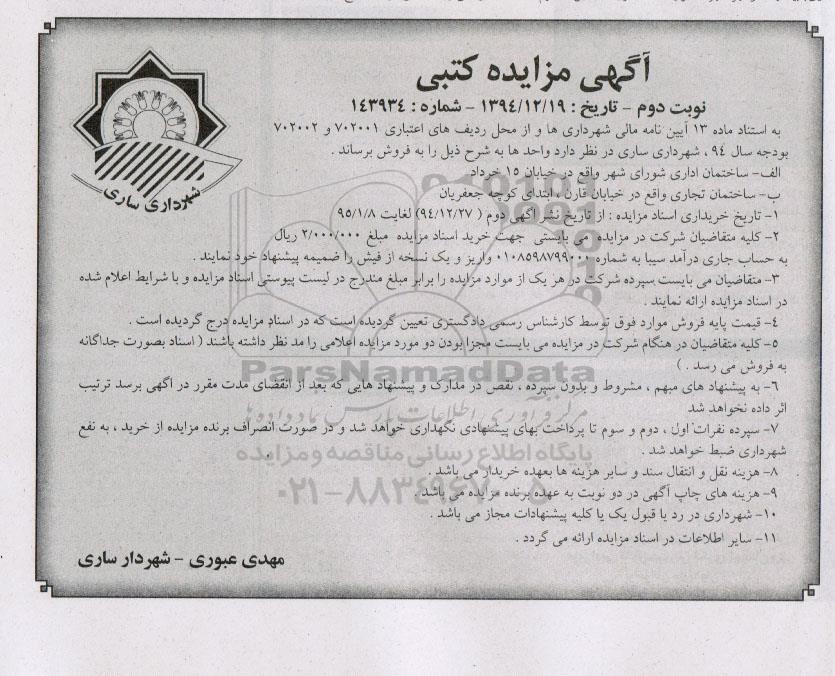 آگهی مزایده کتبی
نوبت دوم - تاریخ : ۱۳۹۴/۱۲/۱۹ - شماره : ۱۴۳۹۳۴
به استناد ماده ۱۳ آیین نامه مالی شهرداری ها و از محل ردیف های اعتباری ۷۰۲۰۰۱ و ۷۰۲۰۰۲
بودجه سال ۹۴ ، شهرداری ساری در نظر دارد واحد ها به شرح ذیل را به فروش برساند .
الف- ساختمان اداری شورای شهر واقع در خیابان ۱۵ خرداد
ب- ساختمان تجاری واقع در خیابان قارن ، ابتدای کوچه جعفریان
۱- تاریخ خریداری اسناد مزایده : از تاریخ نشر آگهی دوم ( ۹۴/۱۲/۲۷) لغایت ۹۵/۱/۸
۲- کلیه متقاضیان شرکت در مزایده می بایستی جهت خرید اسناد مزایده مبلغ ۲/۰۰۰/۰۰۰ ریال
به حساب جاری درآمد سیبا به شماره ۰۱۰۸۵۹۸۷۹۹۰۰۰ واریز و یک نسخه از فیش را ضمیمه پیشنهاد خود نمایند .
۳- متقاضیان می بایست سپرده شرکت در هر یک از موارد مزایده را برابر مبلغ مندرج در لیست پیوستی اسناد مزایده و با شرایط اعلام شده
در اسناد مزایده ارائه نمایند .
۴- قیمت پایه فروش موارد فوق توسط کارشناس رسمی دادگستری تعیین گردیده است که در اسناد مزایده درج گردیده است .
۵- کلیه متقاضیان در هنگام شرکت در مزایده می بایست مجزا بودن دو مورد مزایده اعلامی را مد نظر داشته باشند ( اسناد بصورت جداگانه
به فروش می رسد . )
۶- به پیشنهاد های مبهم ، مشروط و بدون سپرده ، نقص در مدارک و پیشنهاد هایی که بعد از انقضای مدت مقرر در آگهی برسد ترتیب
اثر داده نخواهد شد
۷- سپرده نفرات اول ، دوم و سوم تا پرداخت بهای پیشنهادی نگهداری خواهد شد و در صورت انصراف برنده مزایده از خرید ، به نفع
شهرداری ضبط خواهد شد .
۸- هزینه نقل و انتقال سند و سایر هزینه ها بعهده خریدار می باشد .
۹- هزینه های چاپ آگهی در دو نوبت به عهده برنده مزایده می باشد .
۱۰- شهرداری در رد یا قبول یک یا کلیه پیشنهادات مجاز می باشد .
۱۱- سایر اطلاعات در اسناد مزایده ارائه می گردد .
مهدی عبوری - شهردار ساری
شهرداری ساری
ParsNamadData
مرکز فرآوری اطلاعات پارس نماد داده ها
پایگاه اطلاع رسانی مناقصه و مزایده
۰۲۱-۸۸۳۴۹۶۷۰-۵